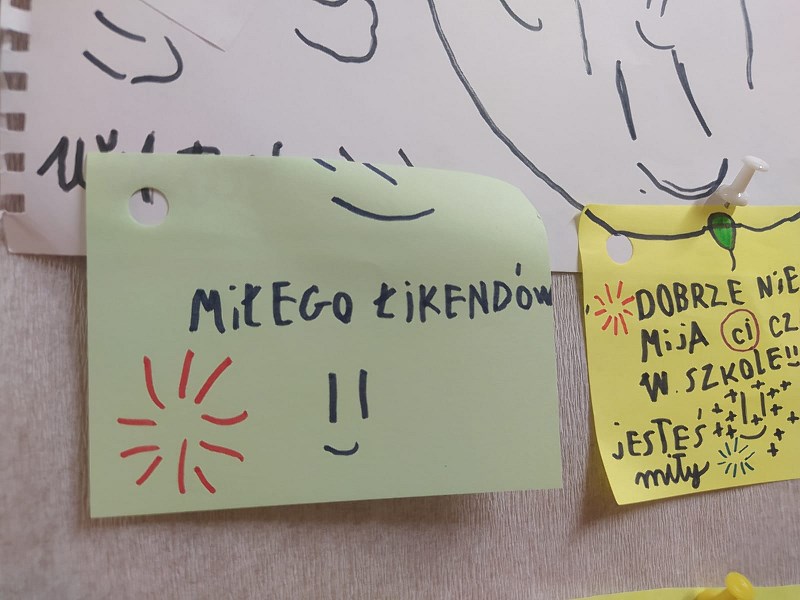 MiŁEGO ŁiKENDÓW
DOBRZE NiE
MijA ci CZ
W. SZKOLE!!
jESTEŚ
miły